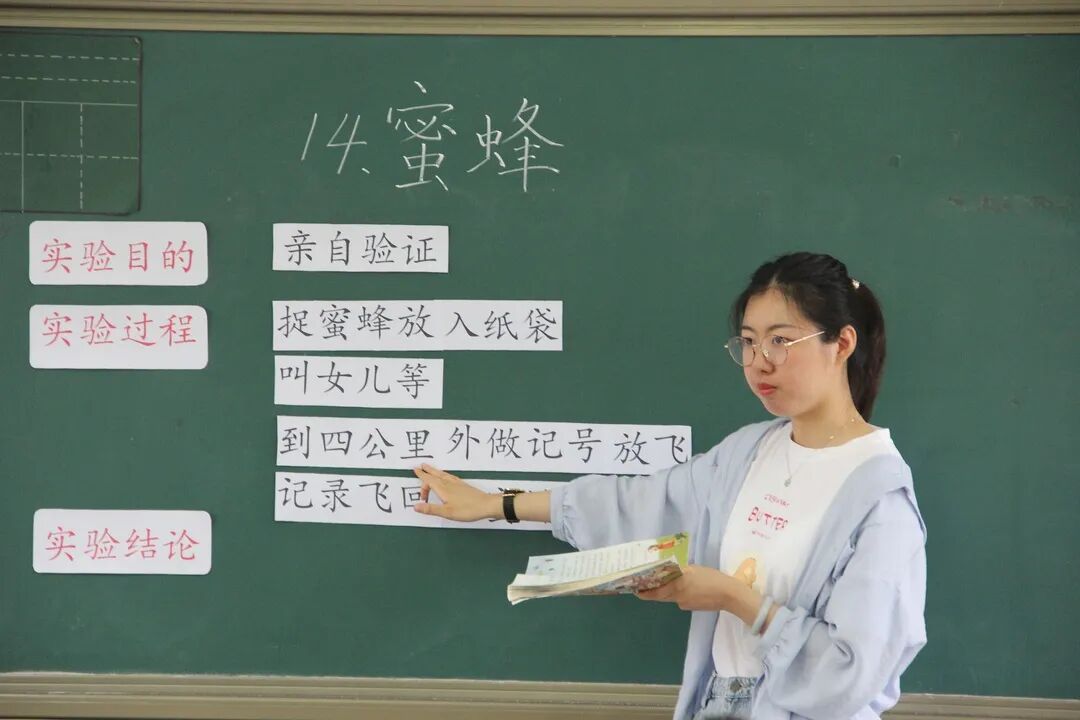 14、蜜蜂
实验目的
亲自验证
实验过程
捉蜜蜂放入纸袋
叫女儿等
到四公里外做记号放飞
记录飞回
实验结论
BUTTER